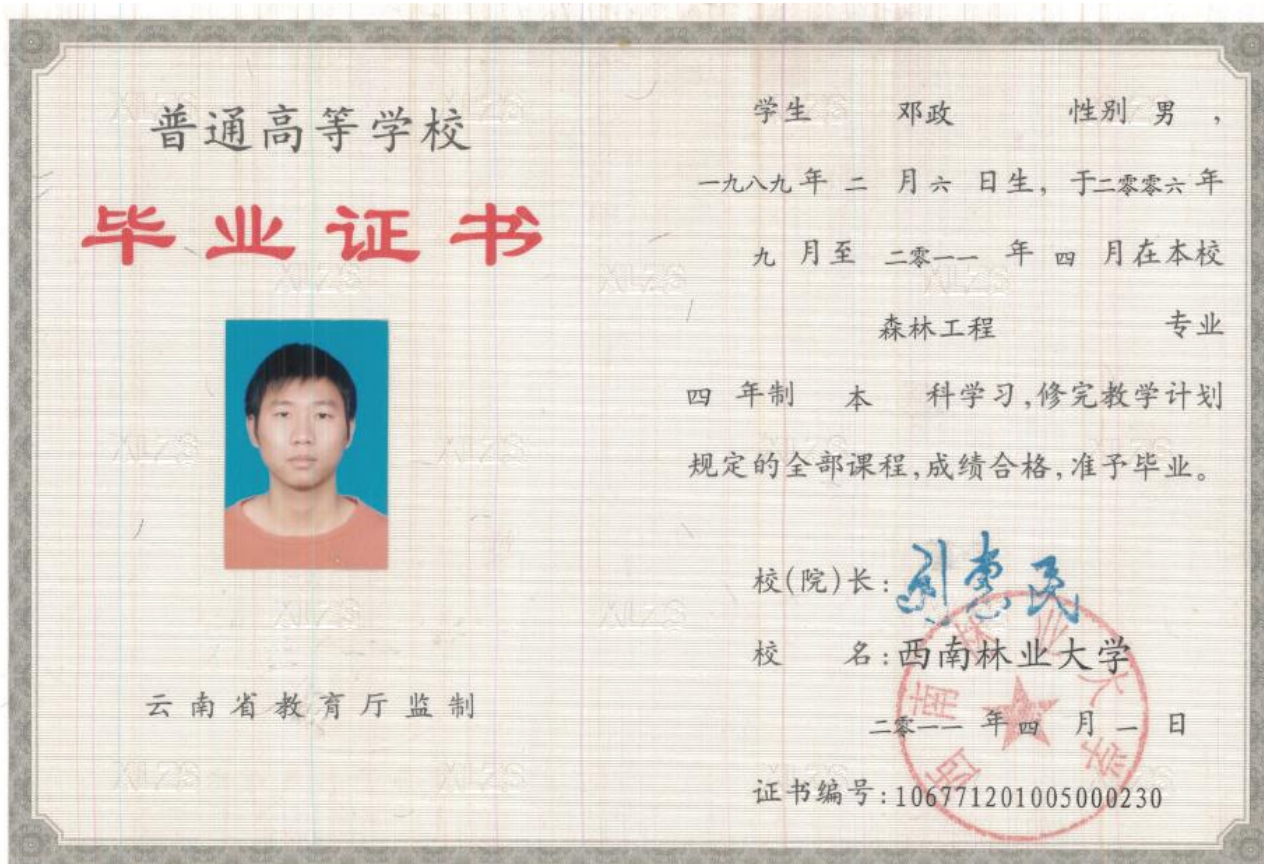 普通高等学校
毕业证书
云南省教育厅监制
学生 邓政 性别 男 ,
一九八九年 二 月 六 日生, 于二零零六年
九 月至 二零一一 年 四 月在本校
森林工程 专业
四 年制 本 科学习,修完教学计划
规定的全部课程,成绩合格,准予毕业。
校(院)长: 刘惠民
校 名: 西南林业大学
二零一一 年 四 月 一 日
证书编号: 106771201005000230
西南林业大学
XLZS